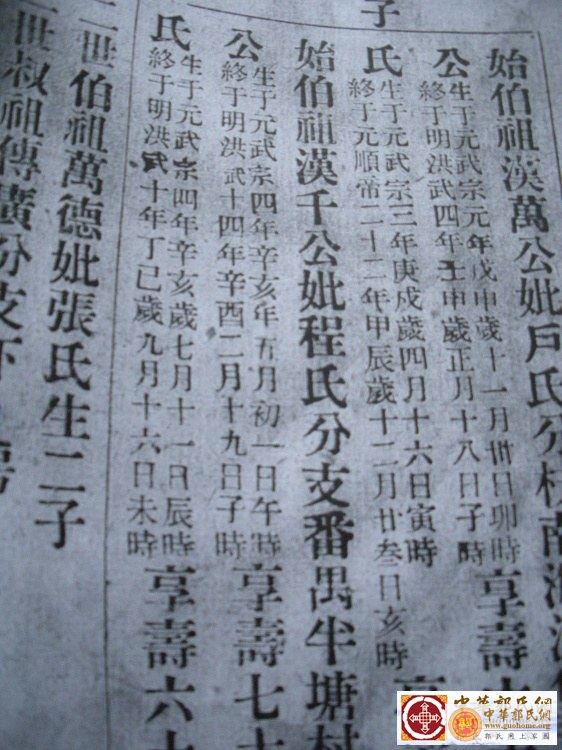 子
始伯祖漢萬公妣戶氏分枝南海
公
生于元武宗元年戊申歲十一月卅日卯時
終于明洪武四年壬申歲正月十八日子時
享壽
氏
生于元武宗三年庚戌歲四月十六日寅時
終于元順帝二十二年甲辰歲十二月廿叁日亥時
始伯祖漢千公妣程氏分支番禺半塘村
公
生于元武宗四年辛亥年五月初一日午時
終于明洪武十四年辛酉二月十九日子時
享壽七
氏
生于元武宗四年辛亥歲七月十一日辰時
終于明洪武十年丁巳歲九月十六日未時
享壽六
二世伯祖萬德妣張氏生二子
二世叔祖傳廣分支下
中華郭氏網
中華郭氏網
www.guohome.org
郭氏網上家園